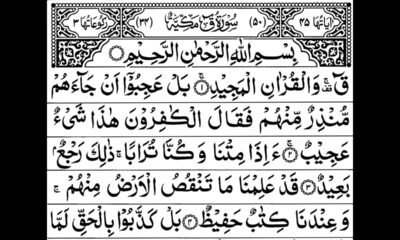 اٰیَاتُهَا ۴۵ (۵۰) سُوْرَةُ قٓ مَكِّيَّةٌ (۳۴) رُكُوْعَاتُهَا ۳
بِسْمِ اللّٰهِ الرَّحْمٰنِ الرَّحِيْمِ ۝
قٓ ۚ وَالْقُرْاٰنِ الْمَجِيْدِ ۝۱ بَلْ عَجِبُوْۤا اَنْ جَآءَهُمْ
مُّنْذِرٌ مِّنْهُمْ فَقَالَ الْكٰفِرُوْنَ هٰذَا شَیْءٌ
عَجِيْبٌ ۝۲ ءَاِذَا مِتْنَا وَكُنَّا تُرَابًا ۚ ذٰلِكَ رَجْعٌۢ
بَعِيْدٌ ۝۳ قَدْ عَلِمْنَا مَا تَنْقُصُ الْاَرْضُ مِنْهُمْ ۚ
وَعِنْدَنَا كِتٰبٌ حَفِيْظٌ ۝۴ بَلْ كَذَّبُوْا بِالْحَقِّ لَمَّا